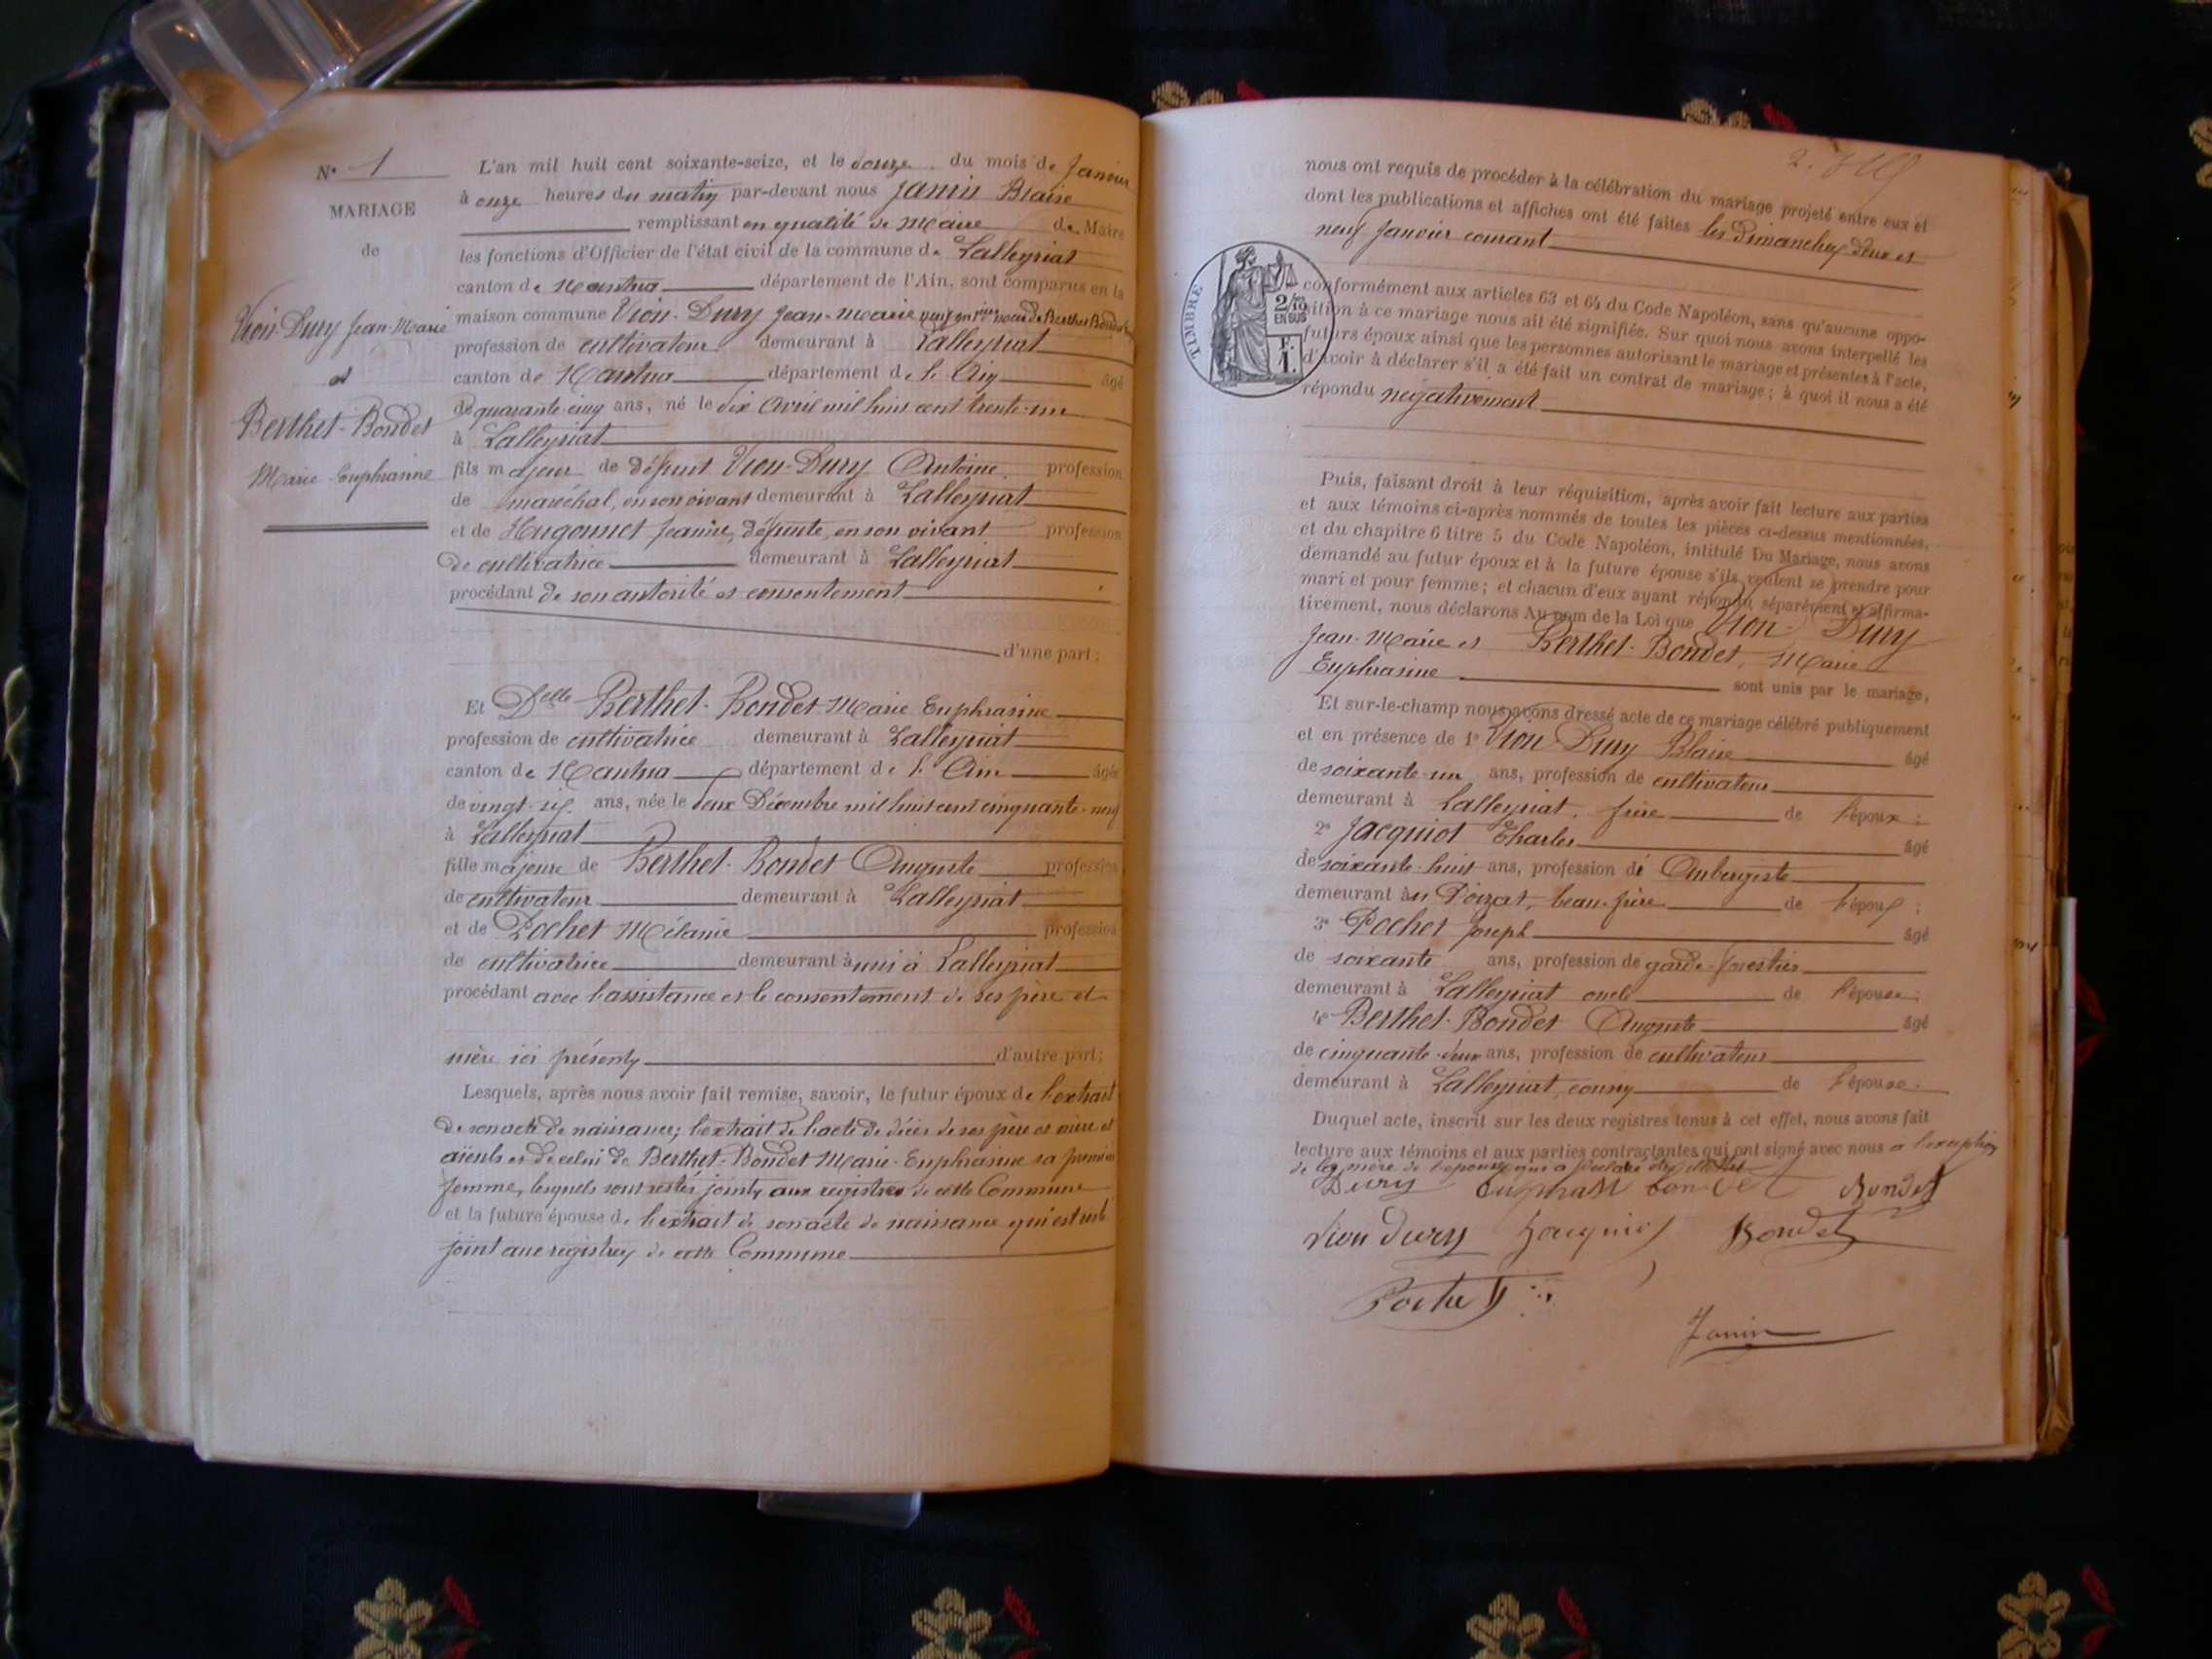 N° 1
MARIAGE
de
Vion-Dury Jean-Marie
et
Berthet-Bondet
Marie Euphrasine
L'an mil huit cent soixante-seize, et le douze du mois de Janvier
à onze heures du matin par-devant nous Janin Blaise
remplissant en qualité de Maire de Maire
les fonctions d'Officier de l'état civil de la commune de Lalleyriat
canton de Nantua département de l'Ain, sont comparus en la
maison commune Vion-Dury Jean-Marie veuf en 1ères noces de Berthet Bondet
profession de cultivateur demeurant à Lalleyriat
canton de Nantua département de l'Ain âgé
de quarante-cinq ans, né le dix Avril mil huit cent trente-un
à Lalleyriat
fils majeur de défunt Vion-Dury Antoine profession
de maréchal, en son vivant demeurant à Lalleyriat
et de Hugonnet Jeanne, défunte, en son vivant profession
de cultivatrice demeurant à Lalleyriat
procédant de son autorité et consentement
d'une part;
Et Delle Berthet-Bondet Marie Euphrasine
profession de cultivatrice demeurant à Lalleyriat
canton de Nantua département de l'Ain âgée
de vingt-six ans, née le deux Décembre mil huit cent cinquante-neuf
à Lalleyriat
fille majeure de Berthet-Bondet Auguste profession
de cultivateur demeurant à Lalleyriat
et de Pochet Mélanie profession
de cultivatrice demeurant à unis à Lalleyriat
procédant avec l'assistance et le consentement de ses père et
mère ici présents d'autre part;
Lesquels, après nous avoir fait remise, savoir, le futur époux de l'extrait
de son acte de naissance; l'extrait de l'acte de décès de ses père et mère et
aïeuls et de celui de Berthet-Bondet Marie-Euphrasine sa première
femme, lesquels sont restés joints aux registres de cette Commune
et la future épouse de l'extrait de son acte de naissance qui est resté
joint aux registres de cette Commune
nous ont requis de procéder à la célébration du mariage projeté entre eux et
dont les publications et affiches ont été faites les Dimanches deux et
neuf Janvier courant
TIMBRE
2/10 EN SUS
F. 1.
conformément aux articles 63 et 64 du Code Napoléon, sans qu'aucune oppo-
sition à ce mariage nous ait été signifiée. Sur quoi nous avons interpellé les
futurs époux ainsi que les personnes autorisant le mariage et présentes à l'acte,
d'avoir à déclarer s'il a été fait un contrat de mariage; à quoi il nous a été
répondu négativement
Puis, faisant droit à leur réquisition, après avoir fait lecture aux parties
et aux témoins ci-après nommés de toutes les pièces ci-dessus mentionnées,
et du chapitre 6 titre 5 du Code Napoléon, intitulé Du Mariage, nous avons
demandé au futur époux et à la future épouse s'ils veulent se prendre pour
mari et pour femme; et chacun d'eux ayant répondu séparément et affirma-
tivement, nous déclarons Au nom de la Loi que Vion-Dury
Jean-Marie et Berthet-Bondet, Marie
Euphrasine sont unis par le mariage,
Et sur-le-champ nous avons dressé acte de ce mariage célébré publiquement
et en présence de 1° Vion-Dury Blaise âgé
de soixante-un ans, profession de cultivateur
demeurant à Lalleyriat, frère de l'époux;
2° Jacquiot Charles âgé
de soixante-huit ans, profession de Aubergiste
demeurant au Poizat, beau-frère de l'époux;
3° Pochet Joseph âgé
de soixante ans, profession de garde-forestier
demeurant à Lalleyriat oncle de l'épouse;
4° Berthet-Bondet Auguste âgé
de cinquante-deux ans, profession de cultivateur
demeurant à Lalleyriat, cousin de l'épouse.
Duquel acte, inscrit sur les deux registres tenus à cet effet, nous avons fait
lecture aux témoins et aux parties contractantes qui ont signé avec nous à l'exception
de la mère de l'épouse qui a déclaré être illettrée
Dury Euphrasi bondet Bondet
Vion Dury Jacquiot Bondet
Pochet
Janin